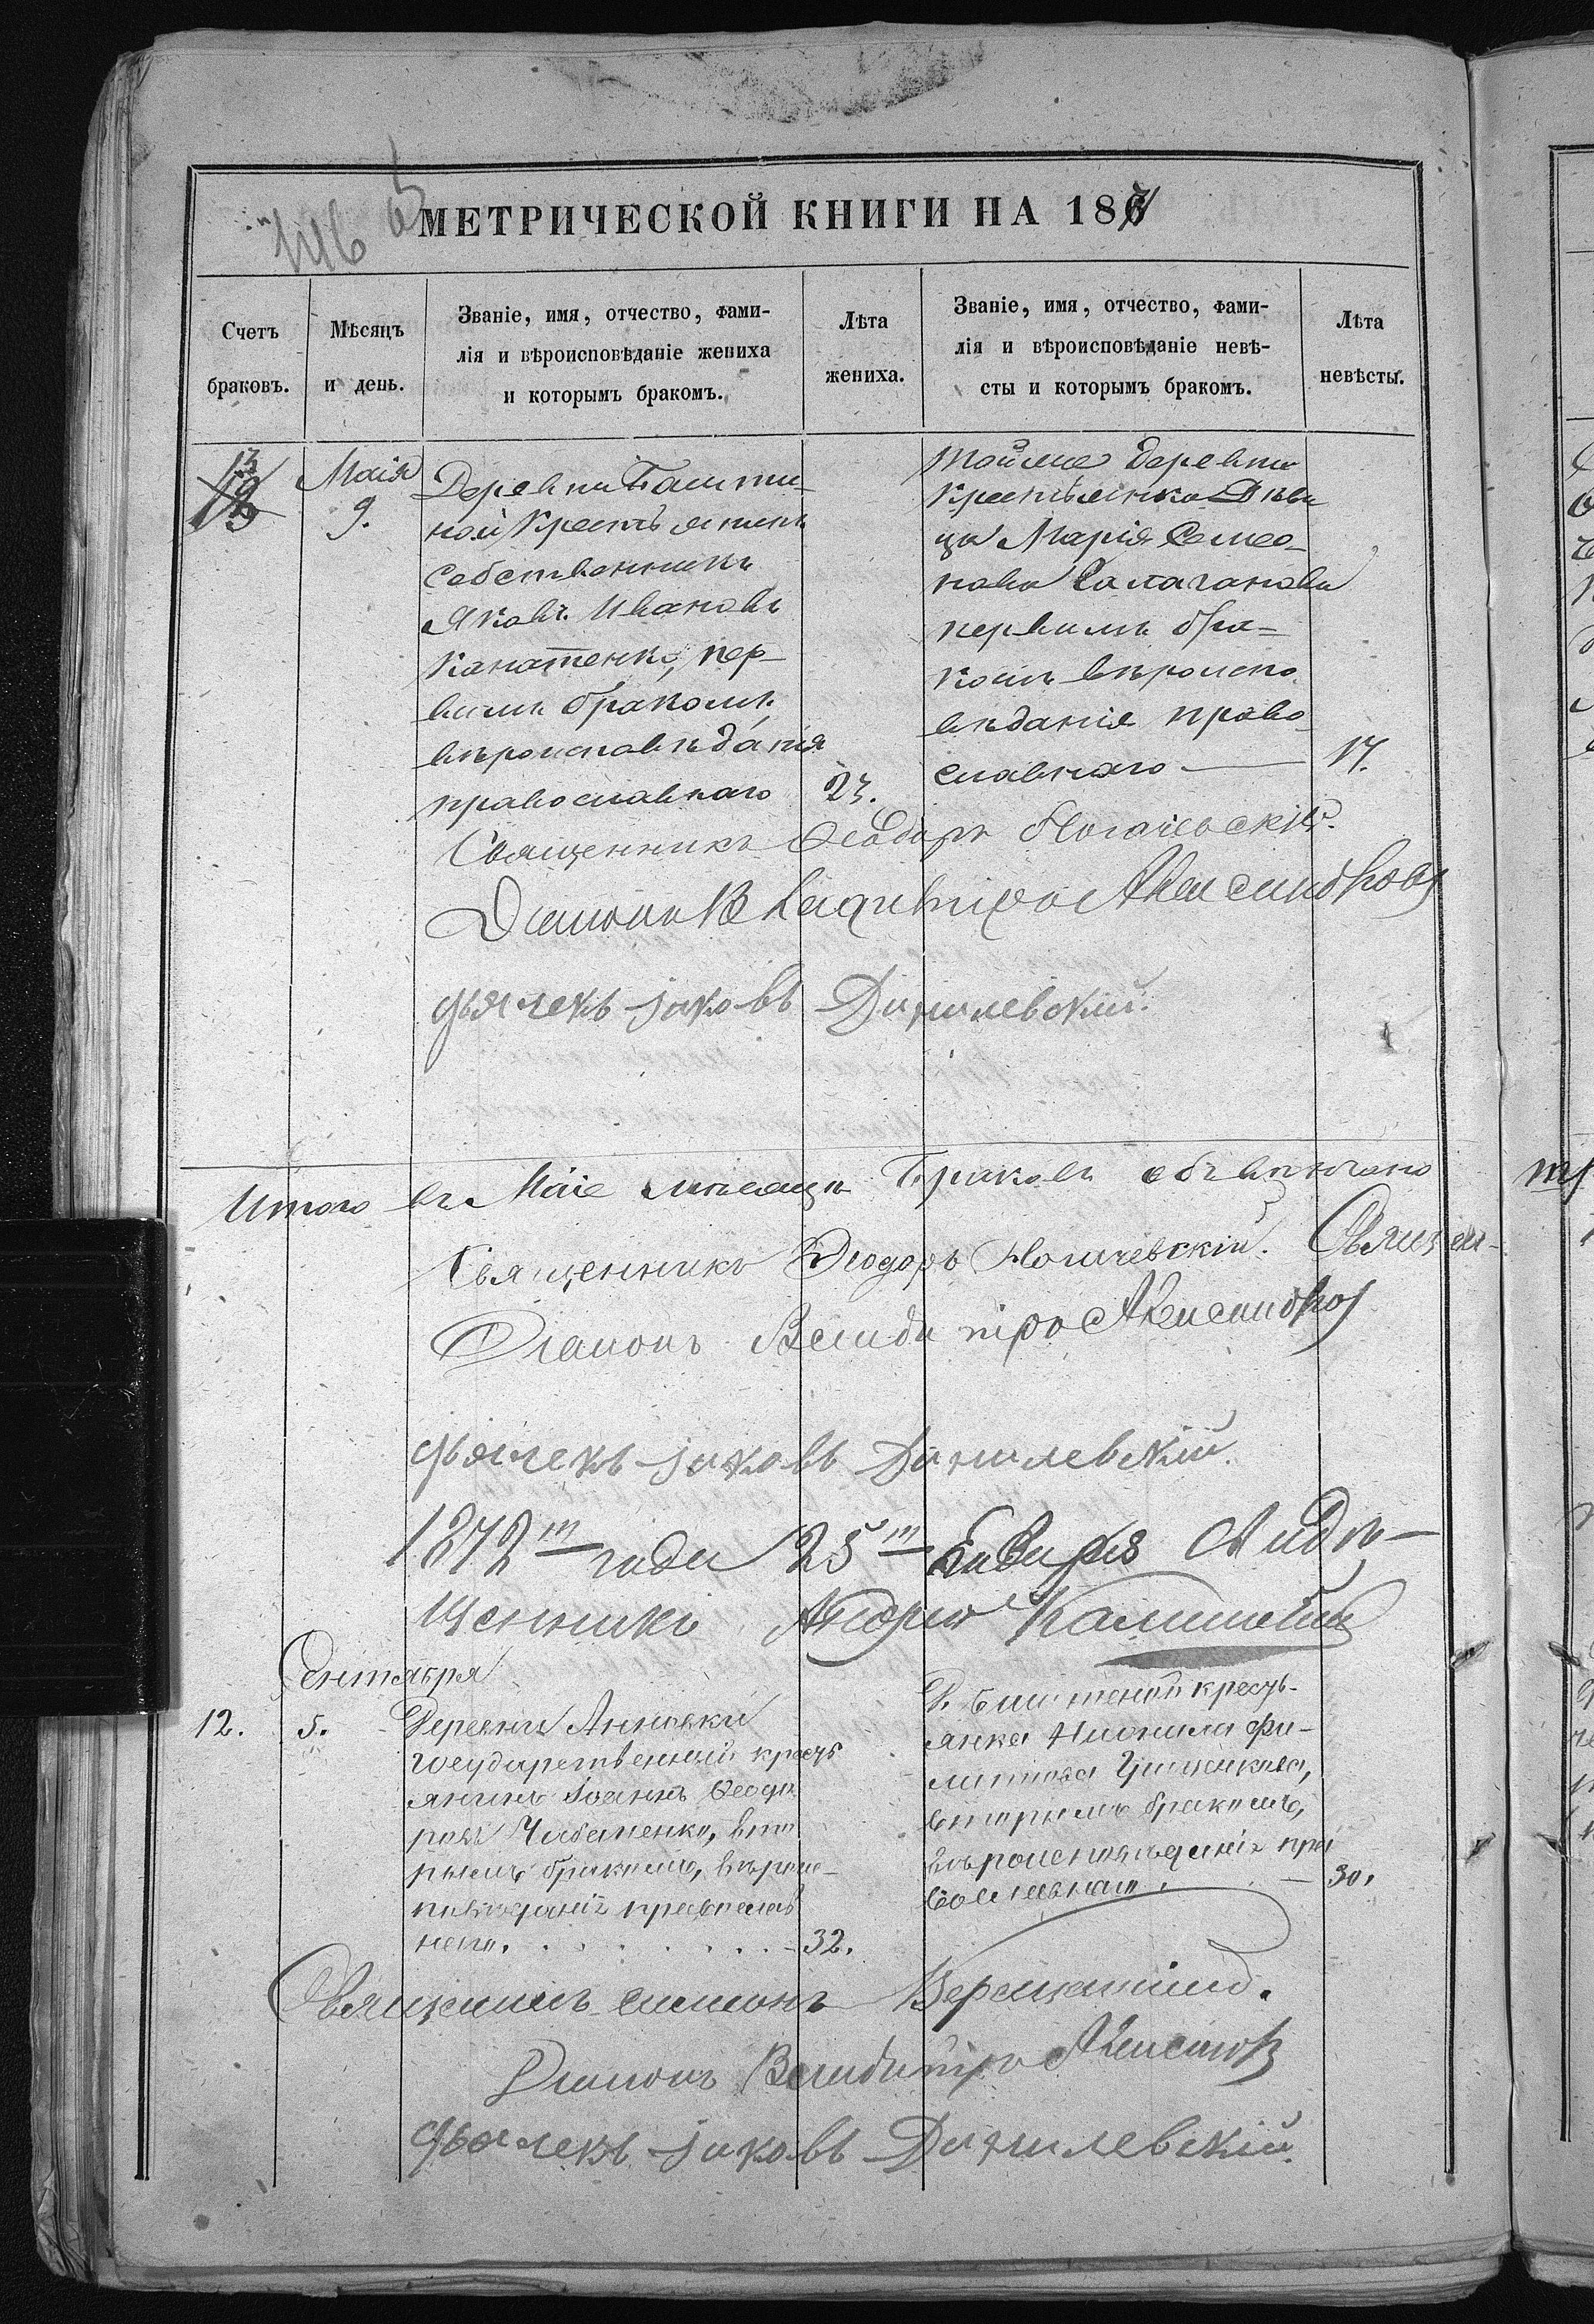 146
МЕТРИЧЕСКОЙ КНИГИ НА 1871
Счетъ браковъ.
Мѣсяцъ и день.
Званіе, имя, отчество, фами-
лія и вѣроисповѣданіе жениха
и которымъ бракомъ.
Лѣта жениха.
Званіе, имя, отчество, фами-
лія и вѣроисповѣданіе невѣ-
сты и которымъ бракомъ.
Лѣта невѣсты.
13
Маія
9.
Деревни Башти-
ной Крестьянинъ
Собственникъ
Яковъ Ивановъ
Канатенко, пер-
вымъ бракомъ,
вѣроисповѣданія
православнаго
23.
Тойже деревни
Крестьянка Дѣви
ца Марія Семе-
нова
первымъ бра-
комъ вѣроиспо
вѣданія право
славнаго
17.
Священникъ Ѳеодоръ Ногачевскій.
Діаконъ Александров
Дьячекъ Іаковъ Данилевскій.
Итого въ Маіе мѣсяцѣ Браковъ объвѣнчано
Священникъ Ѳеодоръ Ногачевскій. Священ-
Діаконъ
Дьячекъ Іаковъ Данилевскій.
1872го года 25го Января
щенникъ Андрей
Сентября
12.
5.
Деревни Анновки
государственный кресть
янинъ Іоаннъ Ѳеодо
ровъ Чабаненко, вто
рымъ бракомъ, вѣроис-
повѣданія православ
наго.
32.
Д. Баштеной кресть-
янка Неонила Фи-
липпова
вторымъ бракомъ,
вѣроисповѣданія пра
вославнаго.
30.
Священникъ Симеонъ
Діаконъ
Дьячекъ Іаковъ Данилевскій.